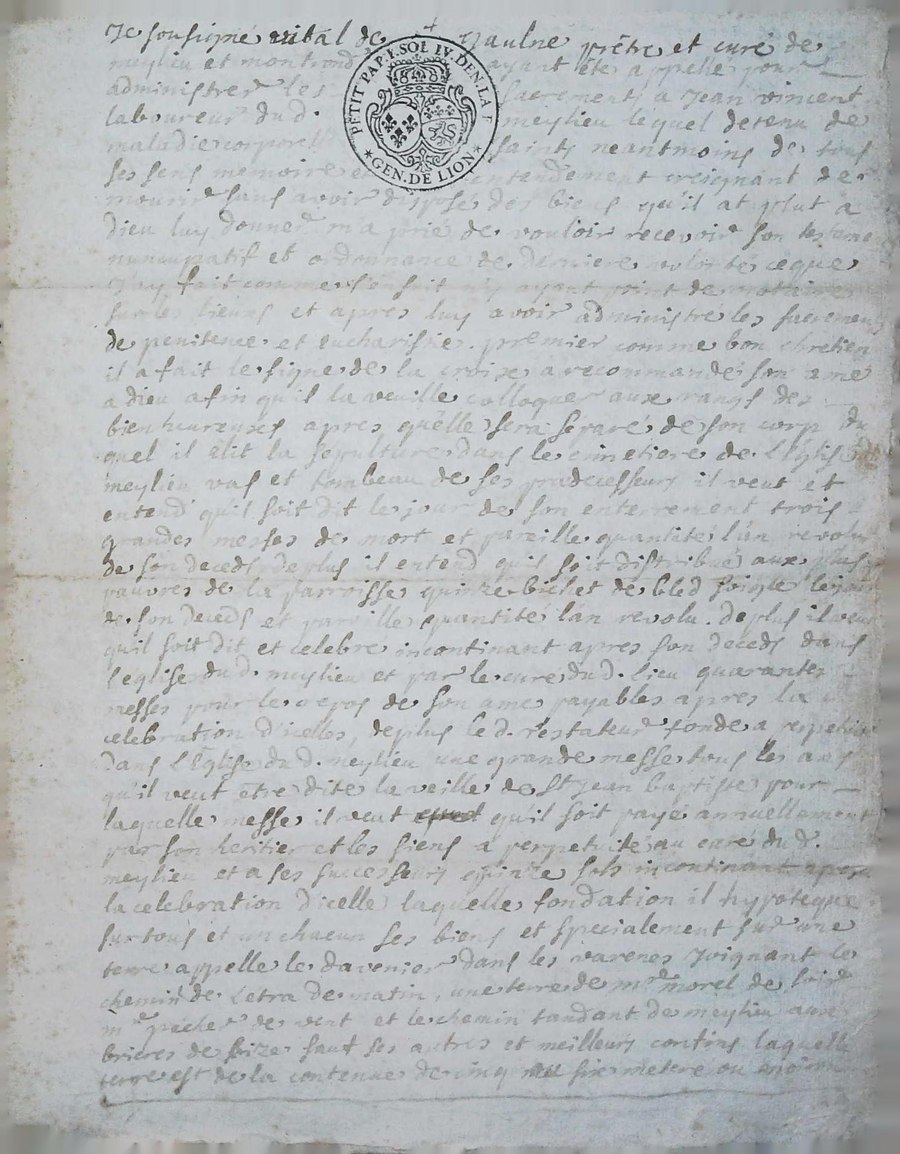 Je sousigné vital de Gaulne prêtre et curé de
meylieu et montrond ayant été appellé pour
administrer les sacrements a Jean vincent
laboureur du d. meylieu lequel detenu de
maladie corporelle sain neantmoins de tous
ses sens memoire et entendement creignant de
mourir sans avoir disposé des biens qu'il at plut a
dieu luy donner m'a prié de vouloir recevoir son testame
nuncupatif et ordonnance de derniere volonté ce que
J'ay fait comme s'ensuit n'y ayant point de notaire
sur les lieus et apres luy avoir administre les sacremens
de penitence et eucharistie. premier comme bon chretien
il a fait le signe de la croix a recommandé son ame
a dieu afin qu'il la veuille colloquer aux rangs des
bienheureuses apres qu'elle sera separé de son corp du
quel il élit la sépulture dans le cimetiere de L'Eglise du
meylieu vas et tombeau de ses prædecesseurs il veut et
entend qu'il soit dit le jour de son enterrement trois
grandes messes de mort et pareille quantité l'an revolu
de son deceds, de plus il entend qu'il soit distribué aux plus
pauvres de la parroisse quinze bichet de bled soigle le jour
de son deceds et pareille quantité l'an revolu. deplus il veut
qu'il soit dit et celebré incontinant apres son deceds dans
l'eglise du d. meylieu et par le curé du d. lieu quarantes
messes pour le repos de son ame payables apres la
celebration d'icelles, deplus le d. testateur fonde a perpetuité
dans L'Eglise du d. meylieu une grande messe tous les ans
qu'il veut être dite la veille de St Jean baptiste pour
laquelle messe il veut qu'il soit payé annuellement
par son heritier et les siens a perpetuité au curé du d.
meylieu et a ses successeurs quinze sols incontinant apres
la celebration d'icelle laquelle fondation il hypoteque
sur tous et un chacun ses biens et specialement sur une
terre appellé le davenior dans les varenes Joignant le
chemin de Letra de matin, une terre de mr. morel de soir
mr. pecher de vent et le chemin tandant de meylieu aux
brieres de bize sauf ses autres et meilleurs confins laquelle
terre est de la contenue de cinq six metere ou environ
PETIT PAP. V. SOL IV. DEN. LA F
GEN. DE LION